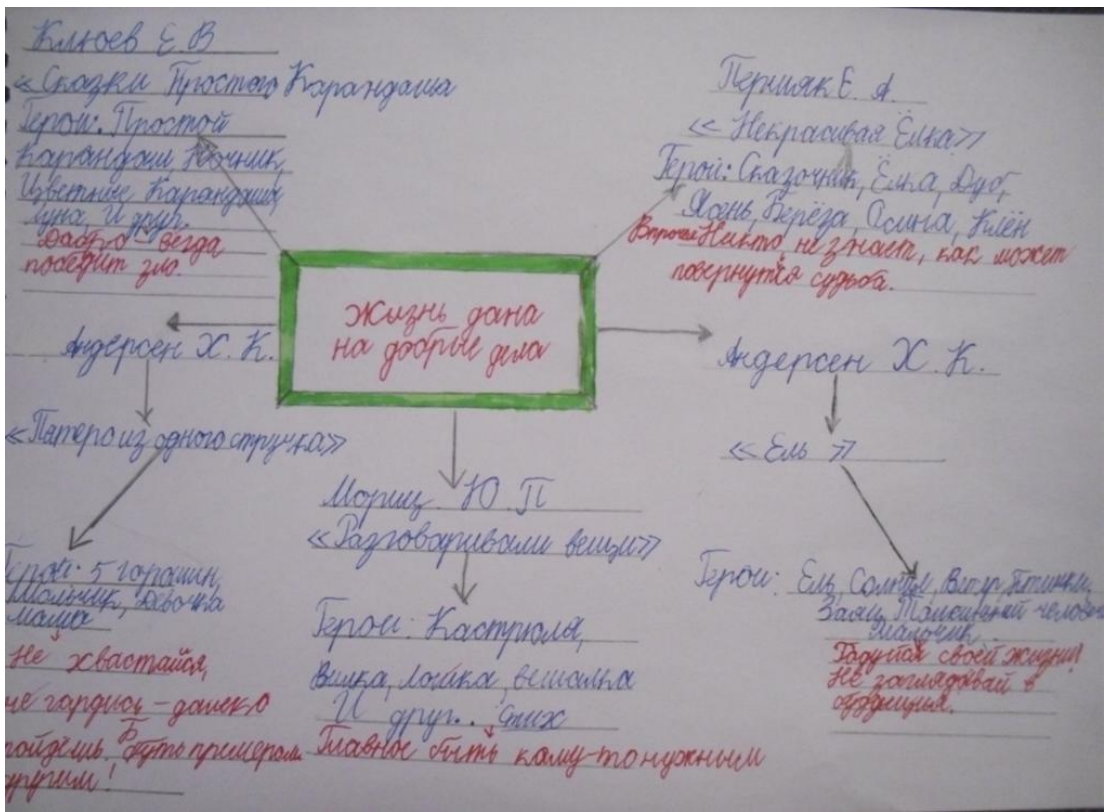 Клюев Е.В
«Сказки Простого Карандаша
Герои: Простой
Карандаш, Ночник,
Цветные Карандаши,
луна, И друг.
Дабро – везда
победит зло.
Пермяк Е. А.
«Некрасивая Ёлка»
Герой: Сказочник, Ёлка, Дуб,
Ясень, Берёза, Осина, Клён
Впрочем Никто не знает, как может
повернутся судьба.
Жизнь дана
на добрые дела
Андерсен Х. К.
«Пятеро из одного стручка»
Герой: 5 горошин,
Мальчик, Девочка
мама
Не хвастайся,
не гордись – далеко
пойдёшь. примером
другим!
Мориц Ю. П
«Разговаривали вещи»
Герои: Кастрюля,
Вилка, ложка, вешалка
И друг.. Стих
Главное быть кому-то нужным
Андерсен Х. К.
«Ель»
Герои: Ель, Ветер, Птички,
Заяц, человек
Мальчик
Радуйся своей жизни!
Не заглядывай в